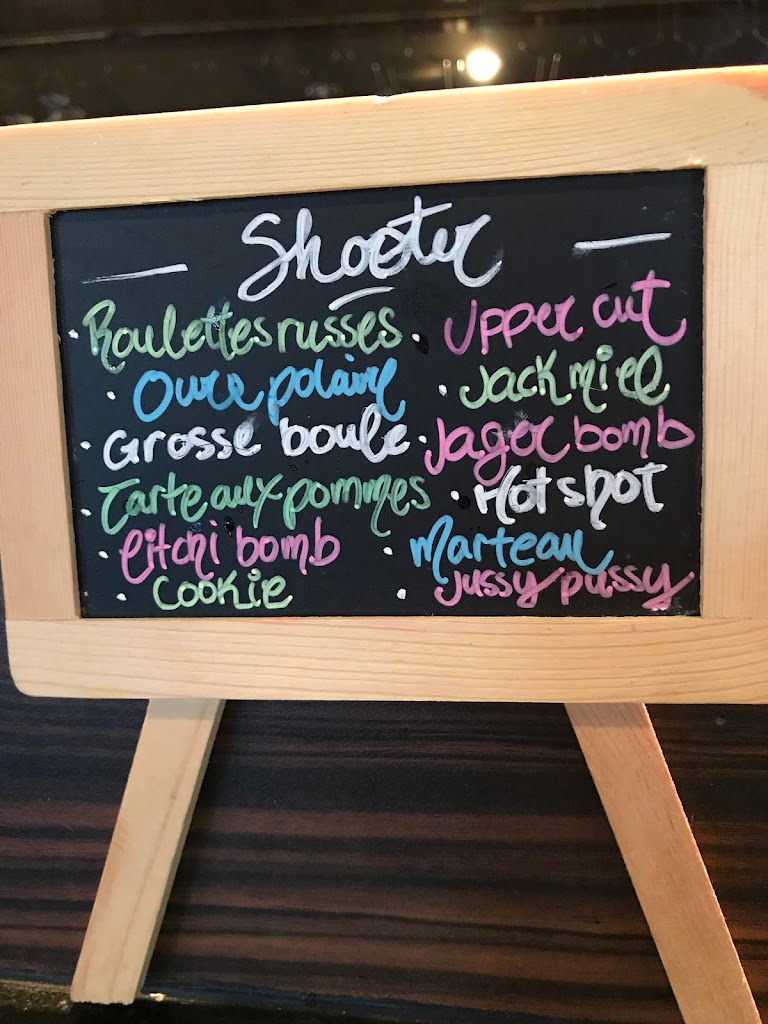 Shooter
Roulettes russes
Ours polaire
Grosse boule
Tarte aux pommes
Litchi bomb
Cookie
Upper cut
Jack miel
Jager bomb
Hot shot
Marteau
Jussy pussy